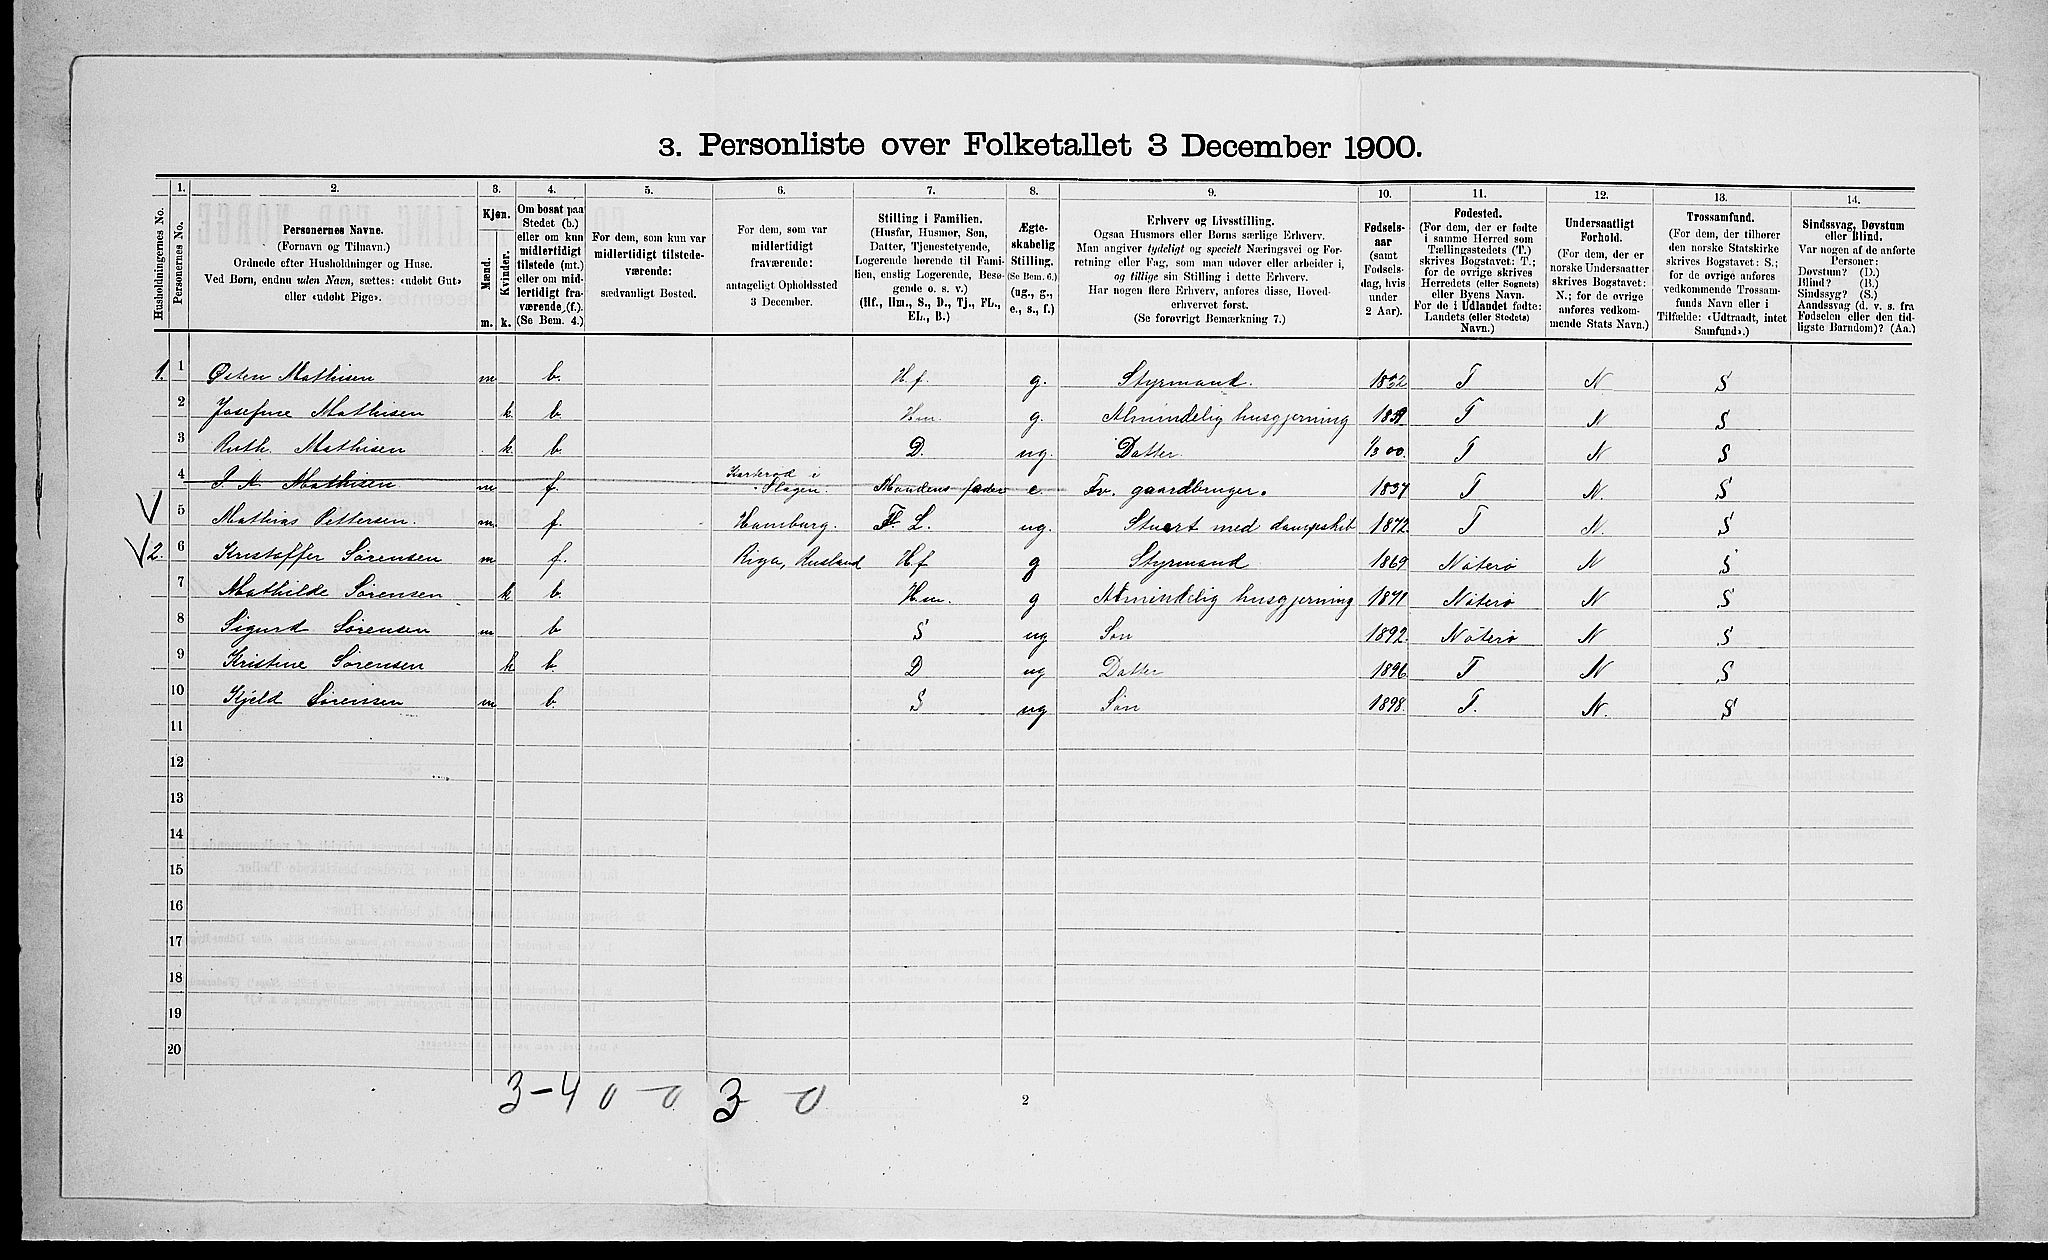 3. Personliste over Folketallet 3 December 1900.
1. 2. 3. 4. 5. 6. 7. 8. 9. 10. 11. 12. 13. 14.
Husholdningernes No.
Personernes No.
Personernes Navne.
(Fornavn og Tilnavn.)
Ordnede efter Husholdninger og Huse.
Ved Børn, endnu uden Navn, sættes: «udøbt Gut»
eller «udøbt Pige».
Kjøn.
Mænd.
Kvinder.
m. k.
Om bosat paa
Stedet (b.)
eller om kun
midlertidigt
tilstede (mt.)
eller om mid-
lertidigt fra-
værende (f.).
(Se Bem. 4.)
For dem, som kun var
midlertidigt tilstede-
værende:
sædvanligt Bosted.
For dem, som var
midlertidigt
fraværende:
antageligt Opholdssted
3 December.
Stilling i Familien.
(Husfar, Husmor, Søn,
Datter, Tjenestetyende,
Logerende hørende til Fami-
lien, enslig Logerende, Besø-
gende o. s. v.)
(Hf., Hm., S., D., Tj., FL.,
EL., B.)
Ægte-
skabelig
Stilling.
(Se Bem. 6.)
(ug., g.,
e., s., f.)
Erhverv og Livsstilling.
Ogsaa Husmors eller Børns særlige Erhverv.
Man angiver tydeligt og specielt Næringsvei og For-
retning eller Fag, som man udøver eller arbeider i,
og tillige sin Stilling i dette Erhverv.
Har nogen flere Erhverv, anføres disse, Hoved-
erhvervet først.
(Se forøvrigt Bemærkning 7.)
Fødsels-
aar
(samt
Fødsels-
dag, hvis
under
2 Aar).
Fødested.
(For dem, der er fødte
i samme Herred som
Tællingsstedets (T.)
skrives Bogstavet: T.;
for de øvrige skrives
Herredets (eller Sognets)
eller Byens Navn.
For de i Udlandet fødte:
Landets (eller Stedets)
Navn.)
Undersaatligt
Forhold.
(For dem, der er
norske Undersaatter
skrives Bogstavet:
N.; for de øvrige
anføres vedkom-
mende Stats Navn.)
Trossamfund.
(For dem, der tilhører
den norske Statskirke
skrives Bogstavet: S.;
for de øvrige anføres
vedkommende Trossam-
funds Navn eller i
Tilfælde: «Udtraadt, intet
Samfund».)
Sindssvag, Døvstum
eller Blind.
Var nogen af de anførte
Personer:
Døvstum? (D.)
Blind? (B.)
Sindssyg? (S.)
Aandssvag (d. v. s. fra
Fødselen eller den tid-
ligste Barndom)? (Aa.)
1. 1 Østen Mathisen m b. H.f. g. Styrmand. 1852 T N S
2 Josefine Mathisen k. b. Hm g. Almindelig husgjerning T N S
3 Ruth. Mathisen k. b. D. ug. Datter. 00. T N S
4 Mathisen m f. i Slagen. Mandens fader e. Fv. gaardbruger. 1837 T N. S
5 Mathias Pettersen. m. f. Hamburg. F L. ug. Stuert med dampskib 1872 T N. S
2. 6 Kristoffer Sørensen m f. Riga, Rusland H f g Styrmand 1869 Nøterø N S
7 Mathilde Sørensen k b. Hm. g Almindelig husgjerning 1871 Nøterø N S
8 Sigurd Sørensen m b S ug Søn 1892. Nøterø N S
9 Kristine Sørensen k b. D ug Datter 1896 T N S
10 Kjeld Sørensen m b. S ug Søn 1898. T. N. S
11
12
13
14
15
16
17
18
19
20
3-4 0 - 0 3 0
2